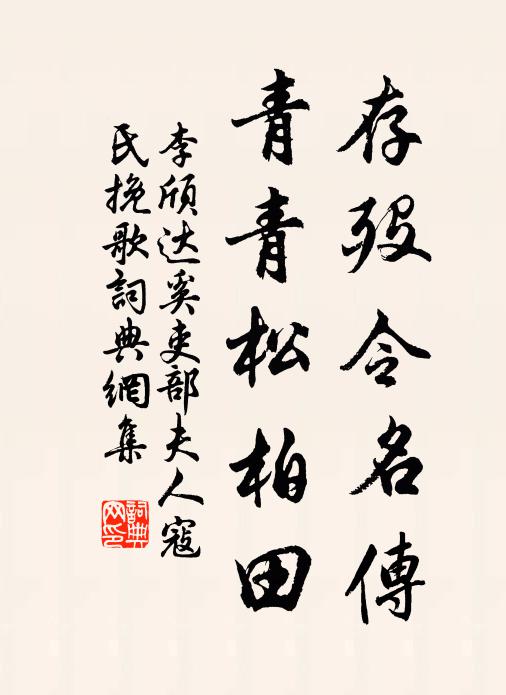 存歿令名傳
青青松柏田
李頎达奚吏部夫人寇
民挽歌詞典網集
詞典网印